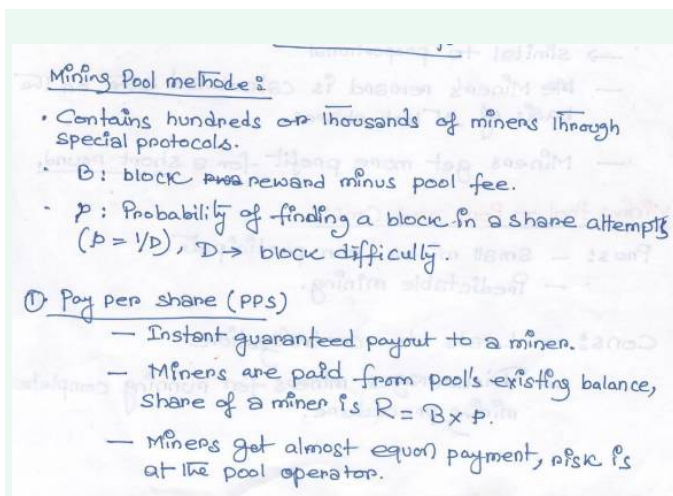 Mining Pool methode:
• Contains hundreds or thousands of miners through
special protocols.
• B: block reward minus pool fee.
• p: Probability of finding a block in a share attempts
(p = 1/D), D → block difficulty.
① Pay per share (PPS)
— Instant guaranteed payout to a miner.
— Miners are paid from pool's existing balance,
share of a miner is R = B x p.
— Miners get almost equal payment, risk is
at the pool operator.